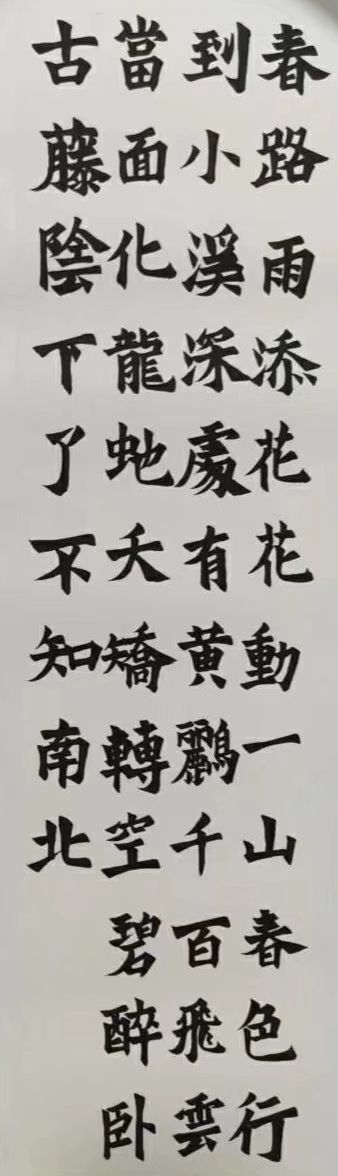 春路雨添花花動一山春色行
到小溪深處有黄鸝千百飛雲
當面化龍虵夭矯轉空碧醉卧
古藤陰下了不知南北